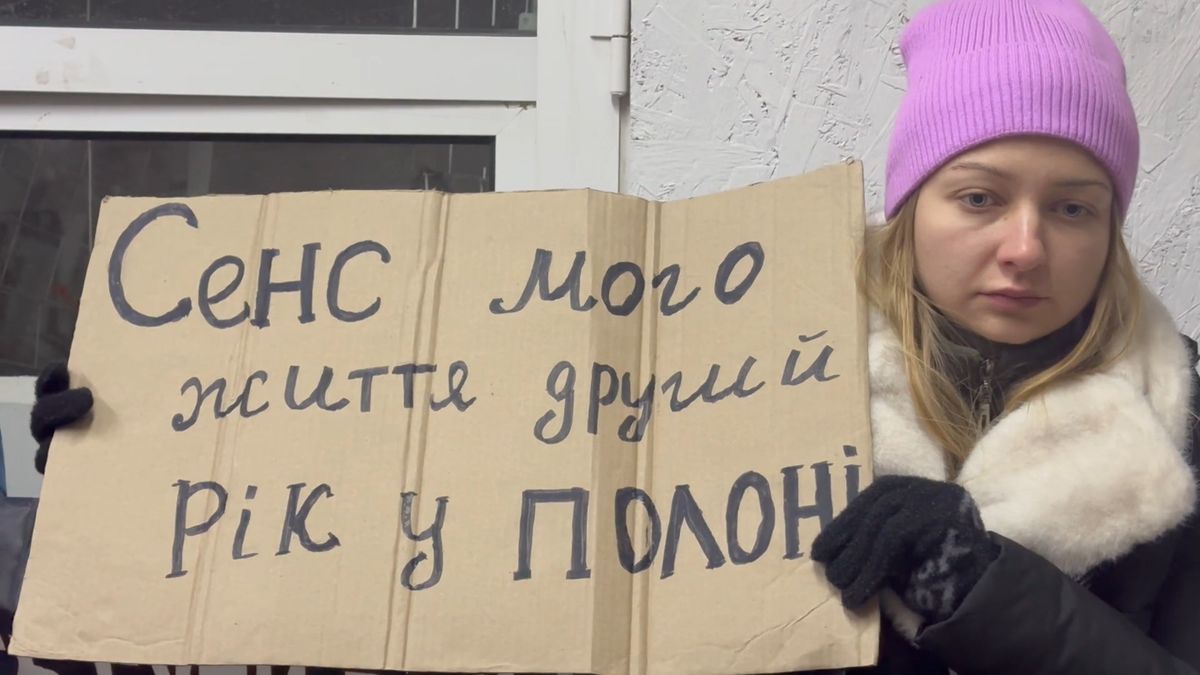 Сенс мого
життя другий
рік у полоні